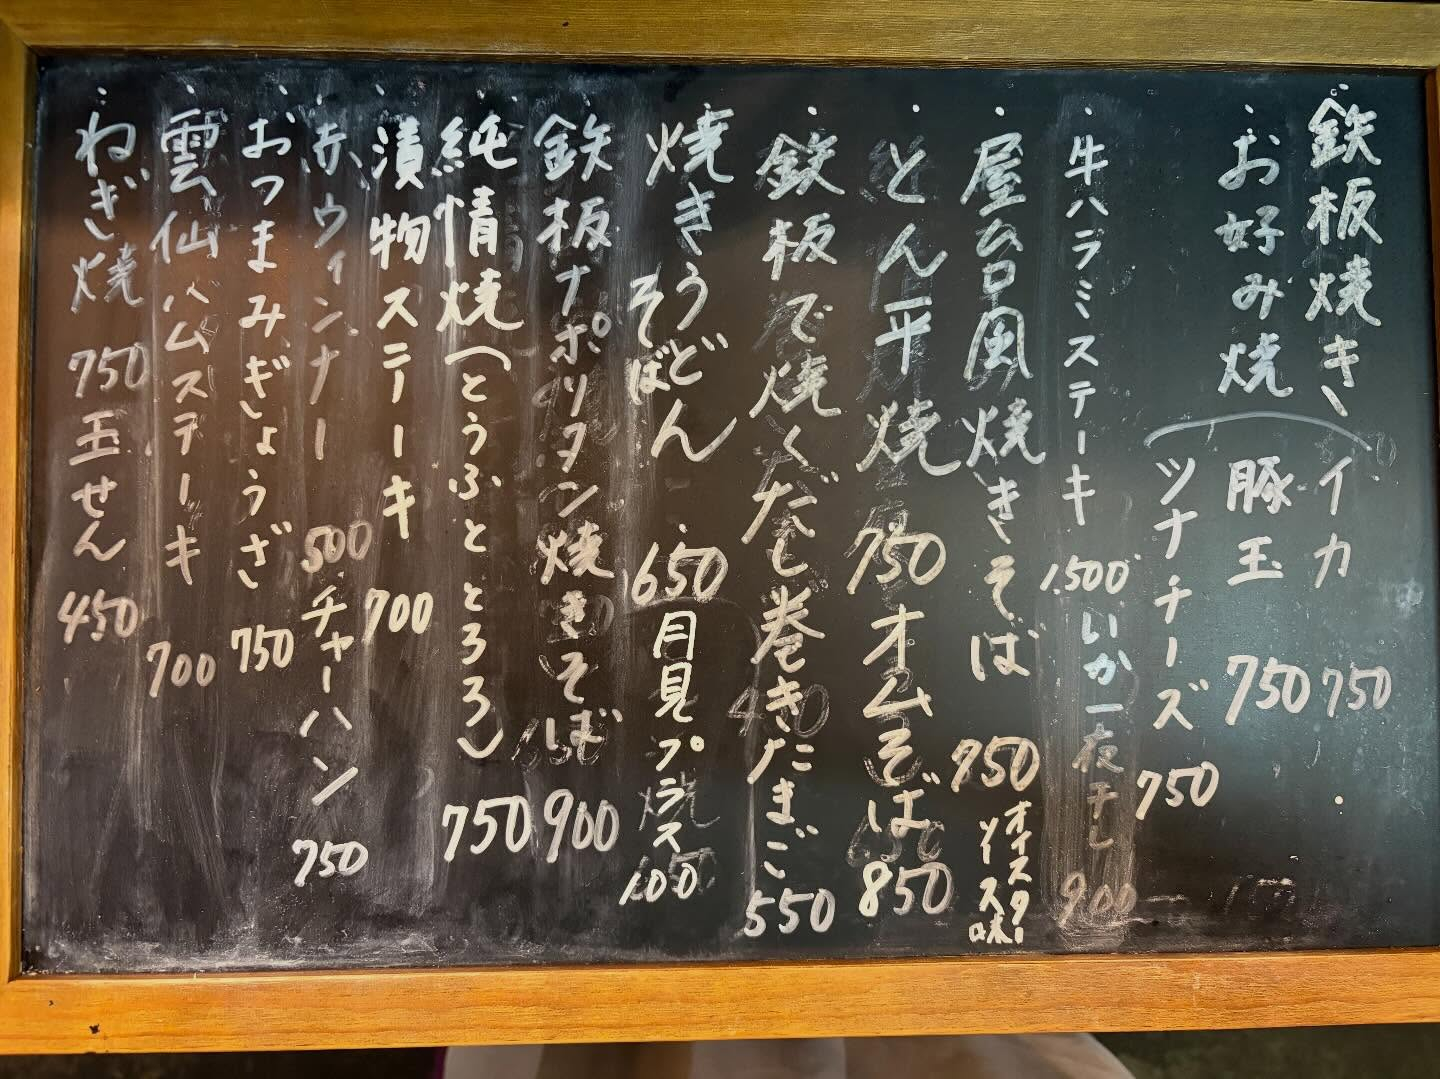 鉄板焼き
イカ 750
お好み焼
豚玉 750
ツナチーズ 750
牛ハラミステーキ 1,500
いか一夜干し 900
屋台風焼きそば 750
オイスターソース味
とん平焼 750
オムそば 850
鉄板で焼くだし巻きたまご 550
焼きうどん
そば
650
月見プラス100
鉄板ナポリタン焼きそば 900
純情焼(とうふととろろ) 750
漬物ステーキ 700
赤ウィンナー 500
チャーハン 750
おつまみぎょうざ 750
雲仙ハムステーキ 700
ねぎ焼 750
玉せん 450